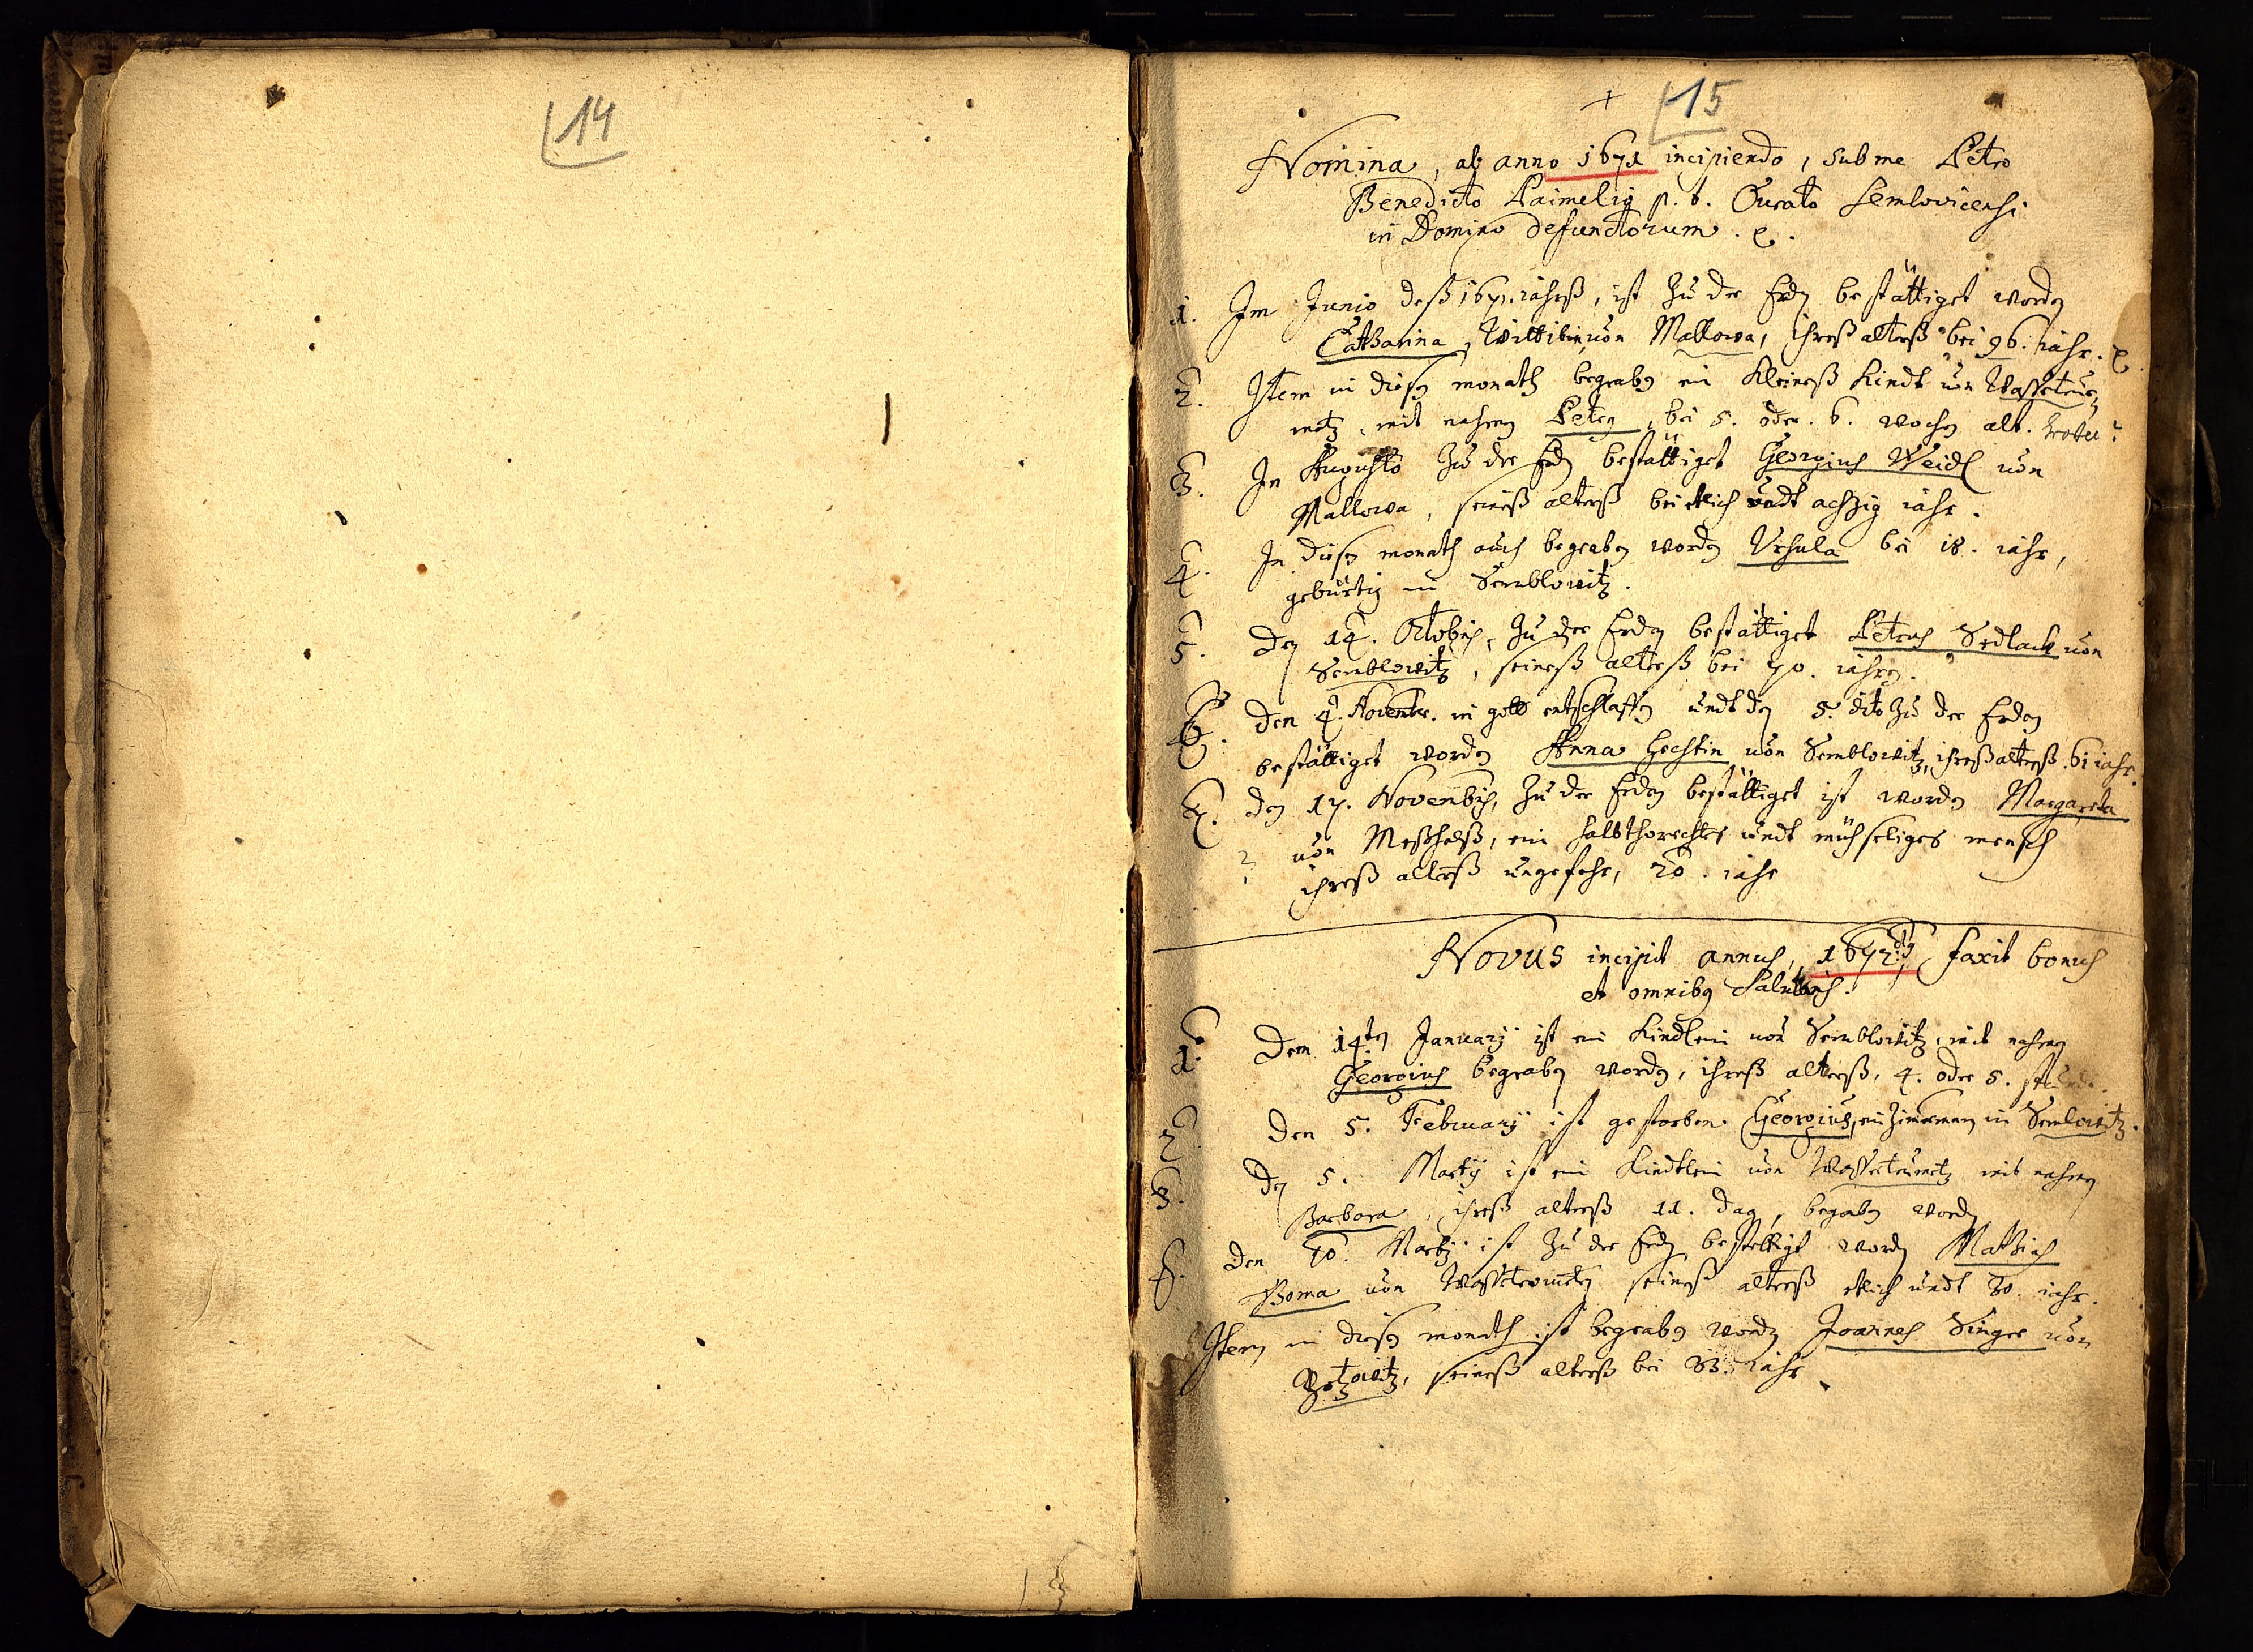 14
+ 15
Nomina, ab anno 1671 incipiendo, sub me Petro
Benedicto Paimelig p. t. Curato Semlovicensi
in Domino defunctorum.
1. Im Junio deß 1671. iahrß, ist zu der Erdn bestättiget wordn
Catharina, Wittibin, von Mallowa, ihreß alterß bei 96. iahr.
2. Item in diesn monath begrabn ein Kleineß Kindt von Wassertrum
metz, mit nahmen Peter, bei 5. oder. 6. wochn alt.
3. In Augusto zu der Erdn bestättiget Georgius Weidl von
Mallowa, seineß alterß bei etlich undt achzig iahr.
4. In diesn monath auch begraben worden Ursula bei 18. iahr,
gebürtig in Semblowitz.
5. Den 14. Octobris, zu der Erden bestättiget Petrus Sedlack von
Semblowitz, seineß alterß bei 70. iahren.
6. Den 4. Novembr. in gott entschlaffn undt den 5. dito zu der Erden
bestättiget worden Anna Hechtin von Semblowitz, ihreß alterß 61 iahr.
7. den 17. Novembris, zu der Erden bestättiget ist worden Margareta
von Meßhalß, ein halbthorechtes undt mühseliges mensch
? ihreß alterß ungefehr, 20. iahr
Novus incipit annus, 1672dus faxit bonus
et omnibus Salutaris.
1. Dem 14ten January ist ein Kindlein von Semblowitz, mit nahmen
Georgius begraben worden, ihreß alterß, 4. oder 5. stundt.
2. Den 5. February ist gestorben Georgius, ein Zimerman in Semlowitz.
3. Den 5. Martij ist ein Kindtlein von mit nahmen
Barbara, ihreß alterß 11. dag, begraben worden
4. Den 10. Martij ist zu der Erdn bestettigt wordn Mathias
Boma von seineß alterß etlich undt 30. iahr.
Item in diesn monath ist begrabn wordn Joannes Singer von
seineß alterß bei 33. iahr
15